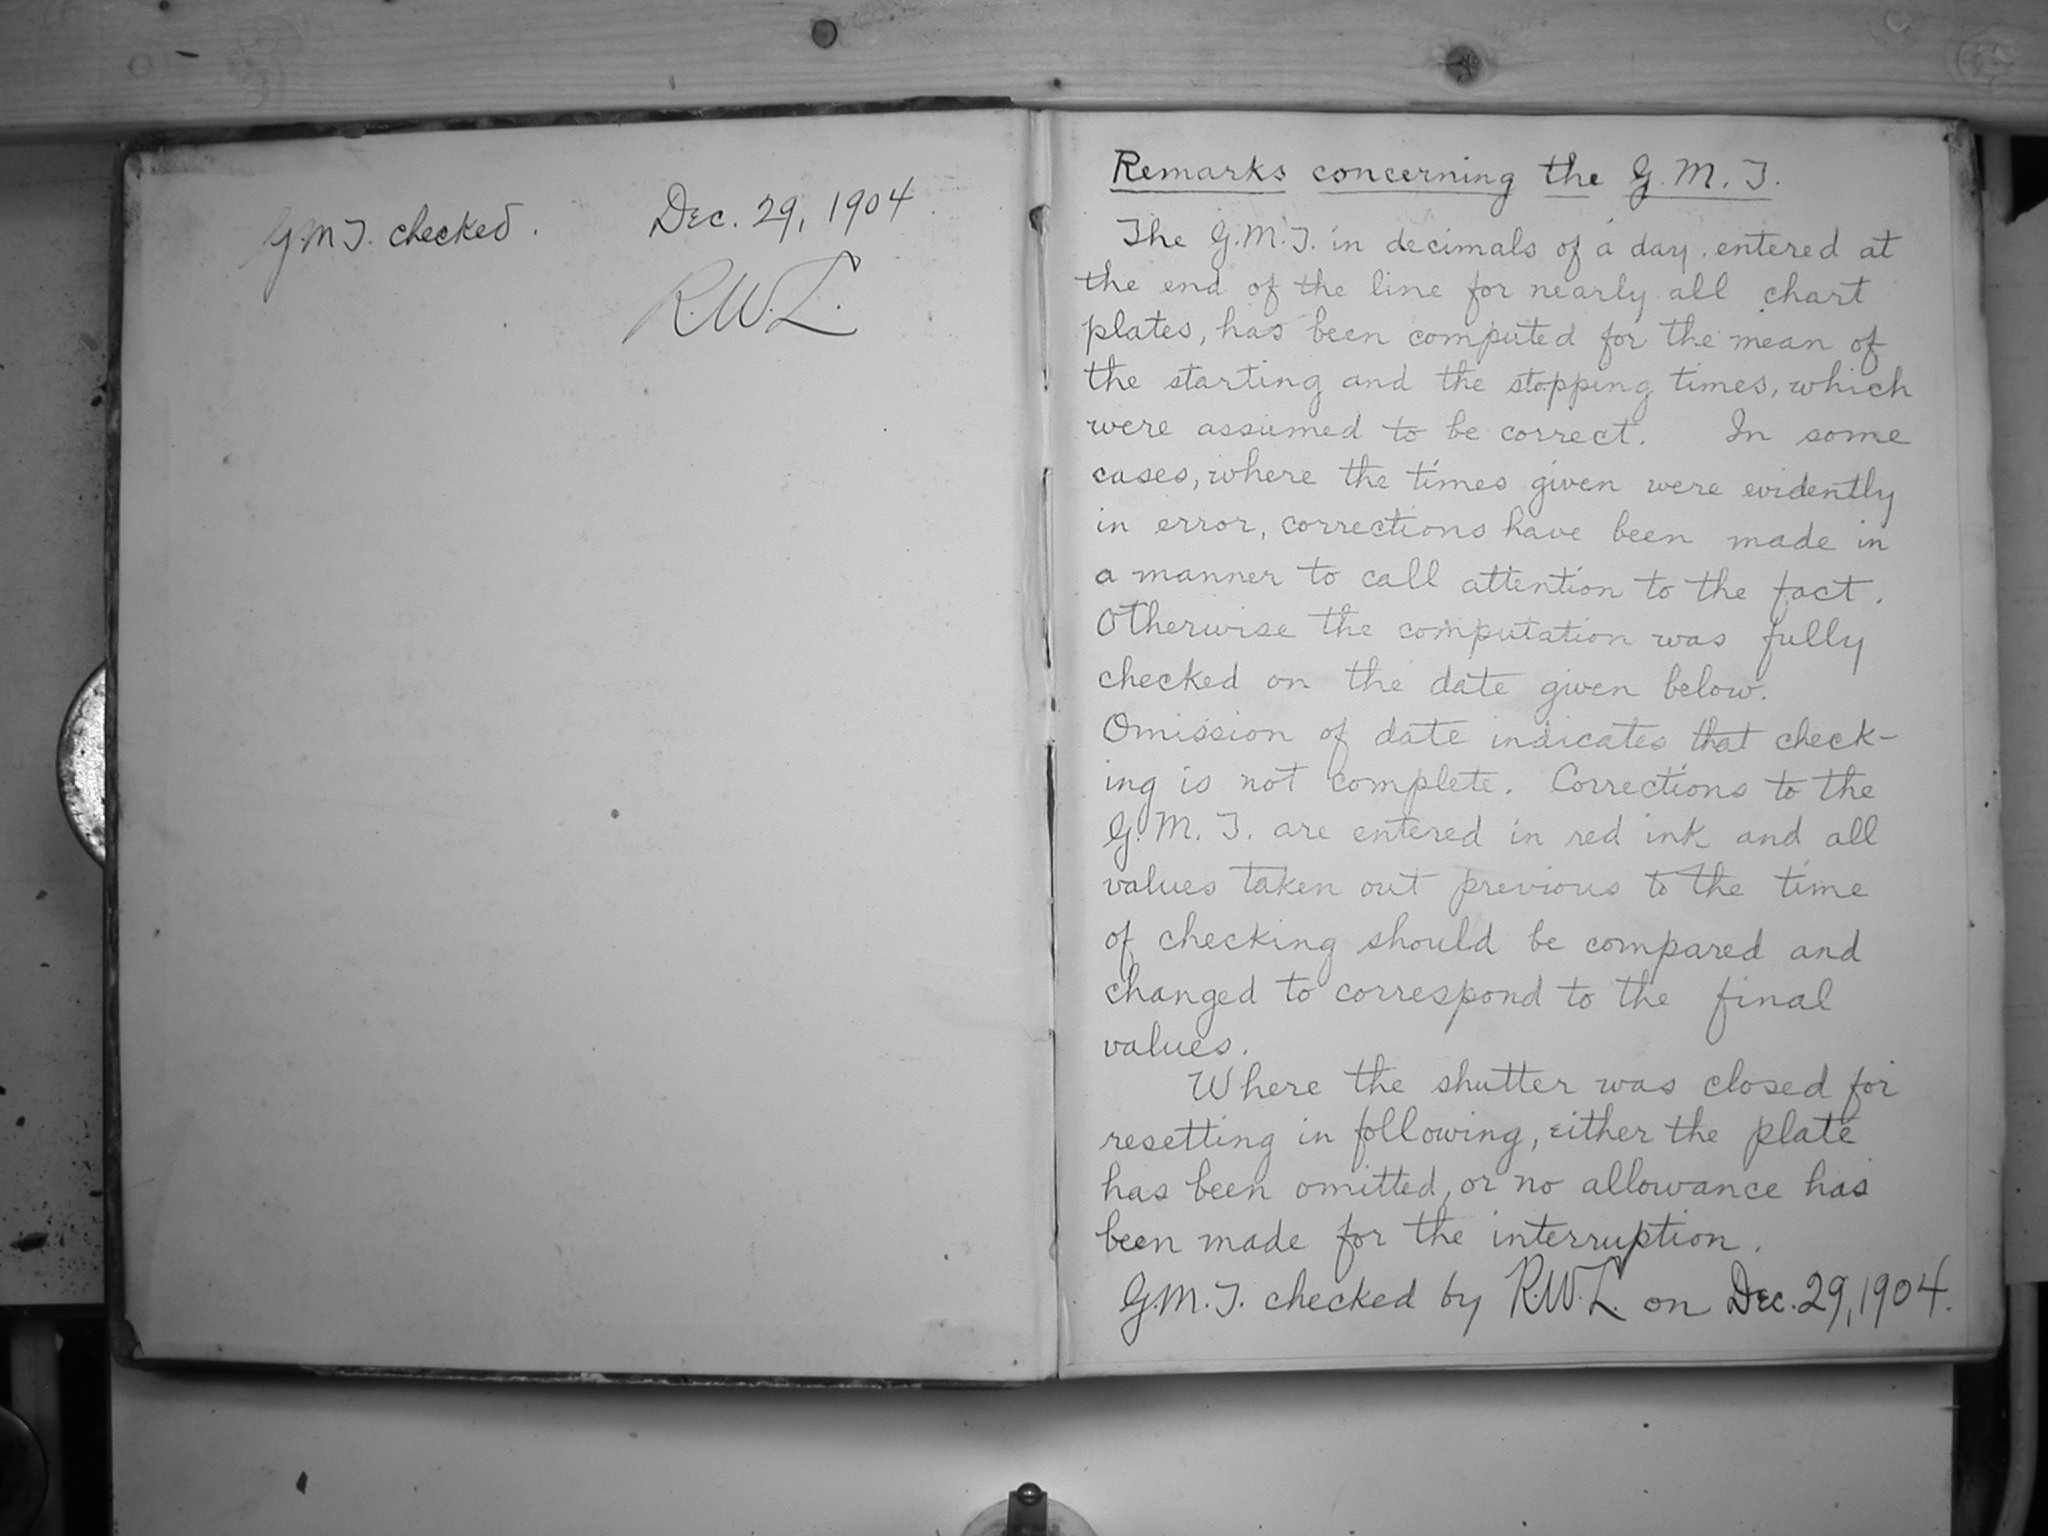 GMT. checked. Dec. 29, 1904
R.W.L.
Remarks concerning the G.M.T.
The G.M.T. in decimals of a day, entered at
the end of the line for nearly all chart
plates, has been computed for the mean of
the starting and the stopping times, which
were assumed to be correct. In some
cases, where the times given were evidently
in error, corrections have been made in
a manner to call attention to the fact.
Otherwise the computation was fully
checked on the date given below.
Omission of date indicates that check-
ing is not complete. Corrections to the
G.M.T. are entered in red ink and all
values taken out previous to the time
of checking should be compared and
changed to correspond to the final
values.
Where the shutter was closed for
resetting in following, either the plate
has been omitted, or no allowance has
been made for the interruption.
G.M.T. checked by R.W.L. on Dec. 29, 1904.